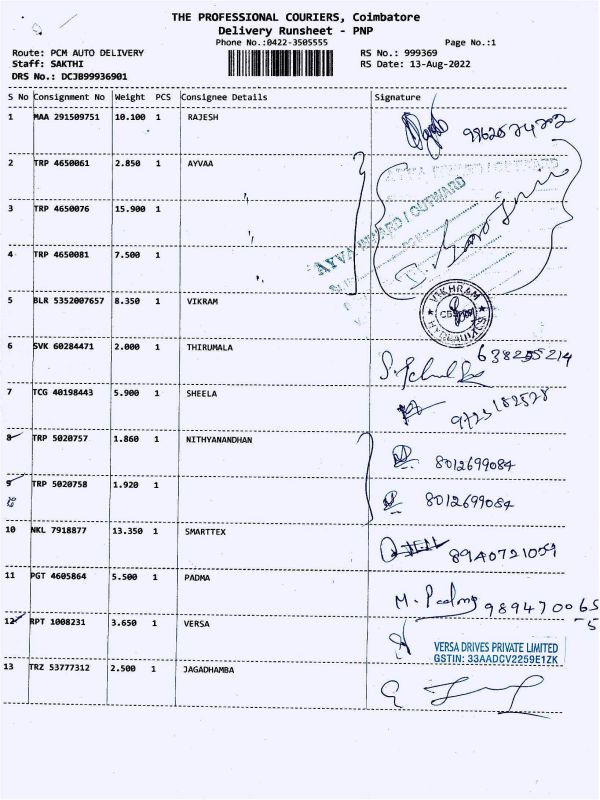 THE PROFESSIONAL COURIERS, Coimbatore
Delivery Runsheet - PNP
Phone No.:0422-3505555 Page No.:1
Route: PCM AUTO DELIVERY RS No.: 999369
Staff: SAKTHI RS Date: 13-Aug-2022
DRS No.: DCJB99936901
S No Consignment No Weight PCS Consignee Details Signature
1 MAA 291509751 10.100 1 RAJESH
2 TRP 4650061 2.850 1 AYVAA
3 TRP 4650076 15.900 1
AYVA INWARD / OUTWARD
4 TRP 4650081 7.500 1
5 BLR 5352007657 8.350 1 VIKRAM
VIKHRAM
HYDRAULICS
6 SVK 60284471 2.000 1 THIRUMALA
7 TCG 40198443 5.900 1 SHEELA
9723182528
8 TRP 5020757 1.860 1 NITHYANANDHAN
8012699084
9 TRP 5020758 1.920 1
8012699084
10 NKL 7918877 13.350 1 SMARTTEX
11 PGT 4605864 5.500 1 PADMA
12 RPT 1008231 3.650 1 VERSA
VERSA DRIVES PRIVATE LIMITED
GSTIN: 33AADCV2259E1ZK
13 TRZ 53777312 2.500 1 JAGADHAMBA